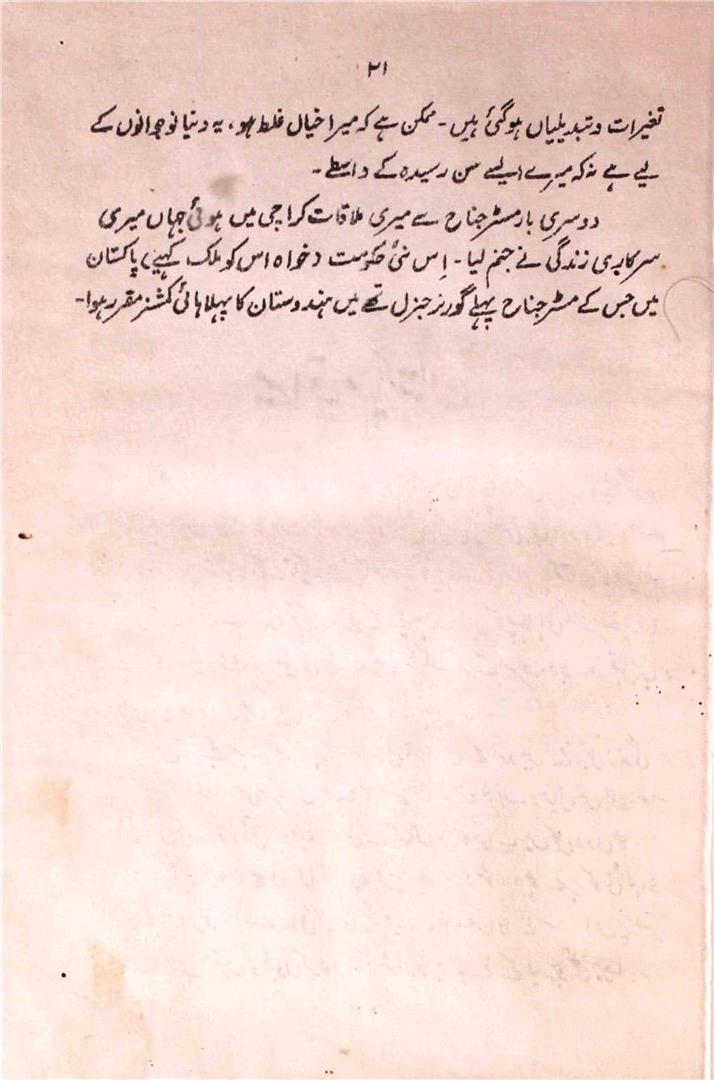 ۲۱
تغیرات و تبدیلیاں ہوگئی ہیں۔ ممکن ہے کہ میرا خیال غلط ہو، یہ دنیا نوجوانوں کے
لیے ہے نہ کہ میرے ایسے سن رسیدہ کے واسطے۔
دوسری بار مسٹر جناح سے میری ملاقات کراچی میں ہوئی جہاں میری
سرکاری زندگی نے جنم لیا۔ اِس نئی حکومت (خواہ اس کو ملک کہیے) پاکستان
میں جس کے مسٹر جناح پہلے گورنر جنرل تھے میں ہندوستان کا پہلا ہائی کمشنر مقرر ہوا۔